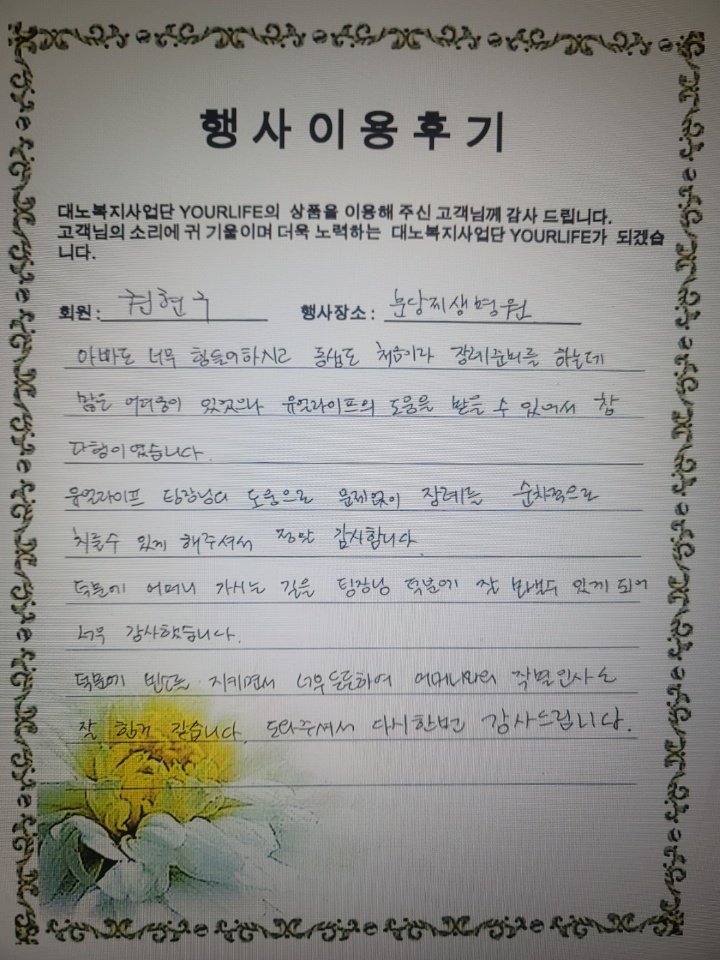 행사이용후기
대노복지사업단 YOURLIFE의 상품을 이용해 주신 고객님께 감사 드립니다.
고객님의 소리에 귀 기울이며 더욱 노력하는 대노복지사업단 YOURLIFE가 되겠습
니다.
회원 : 권현구 행사장소 : 분당제생병원
아빠도 너무 힘들어하시고 동생도 처음이라 장례준비를 하는데
많은 어려움이 있었으나 유얼라이프의 도움을 받을 수 있어서 참
다행이였습니다.
유얼라이프 팀장님의 도움으로 문제없이 장례를 순차적으로
치를수 있게 해주셔서 정말 감사합니다
덕분에 어머니 가시는 길을 팀장님 덕분에 잘 보낼수 있게 되어
너무 감사했습니다.
덕분에 빈소를 지키면서 너무 든든하여 어머니와의 작별인사를
잘 한거 같습니다. 도와주셔서 다시한번 감사드립니다.